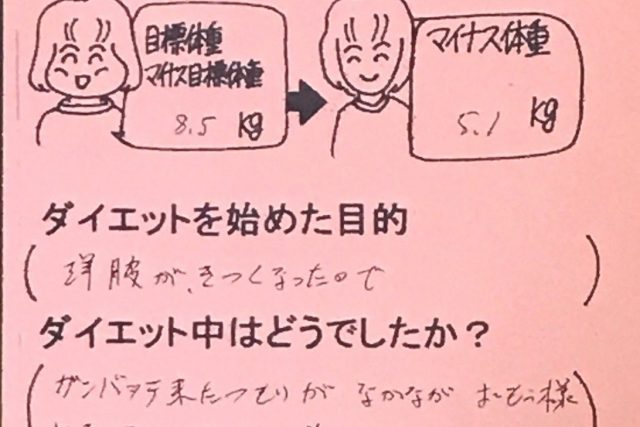 目標体重
マイナス目標体重
8.5 kg
マイナス体重
5.1 kg
ダイエットを始めた目的
(洋服が、きつくなったので)
ダイエット中はどうでしたか？
(ガンバッテ来たつもりが なかなか おもう様